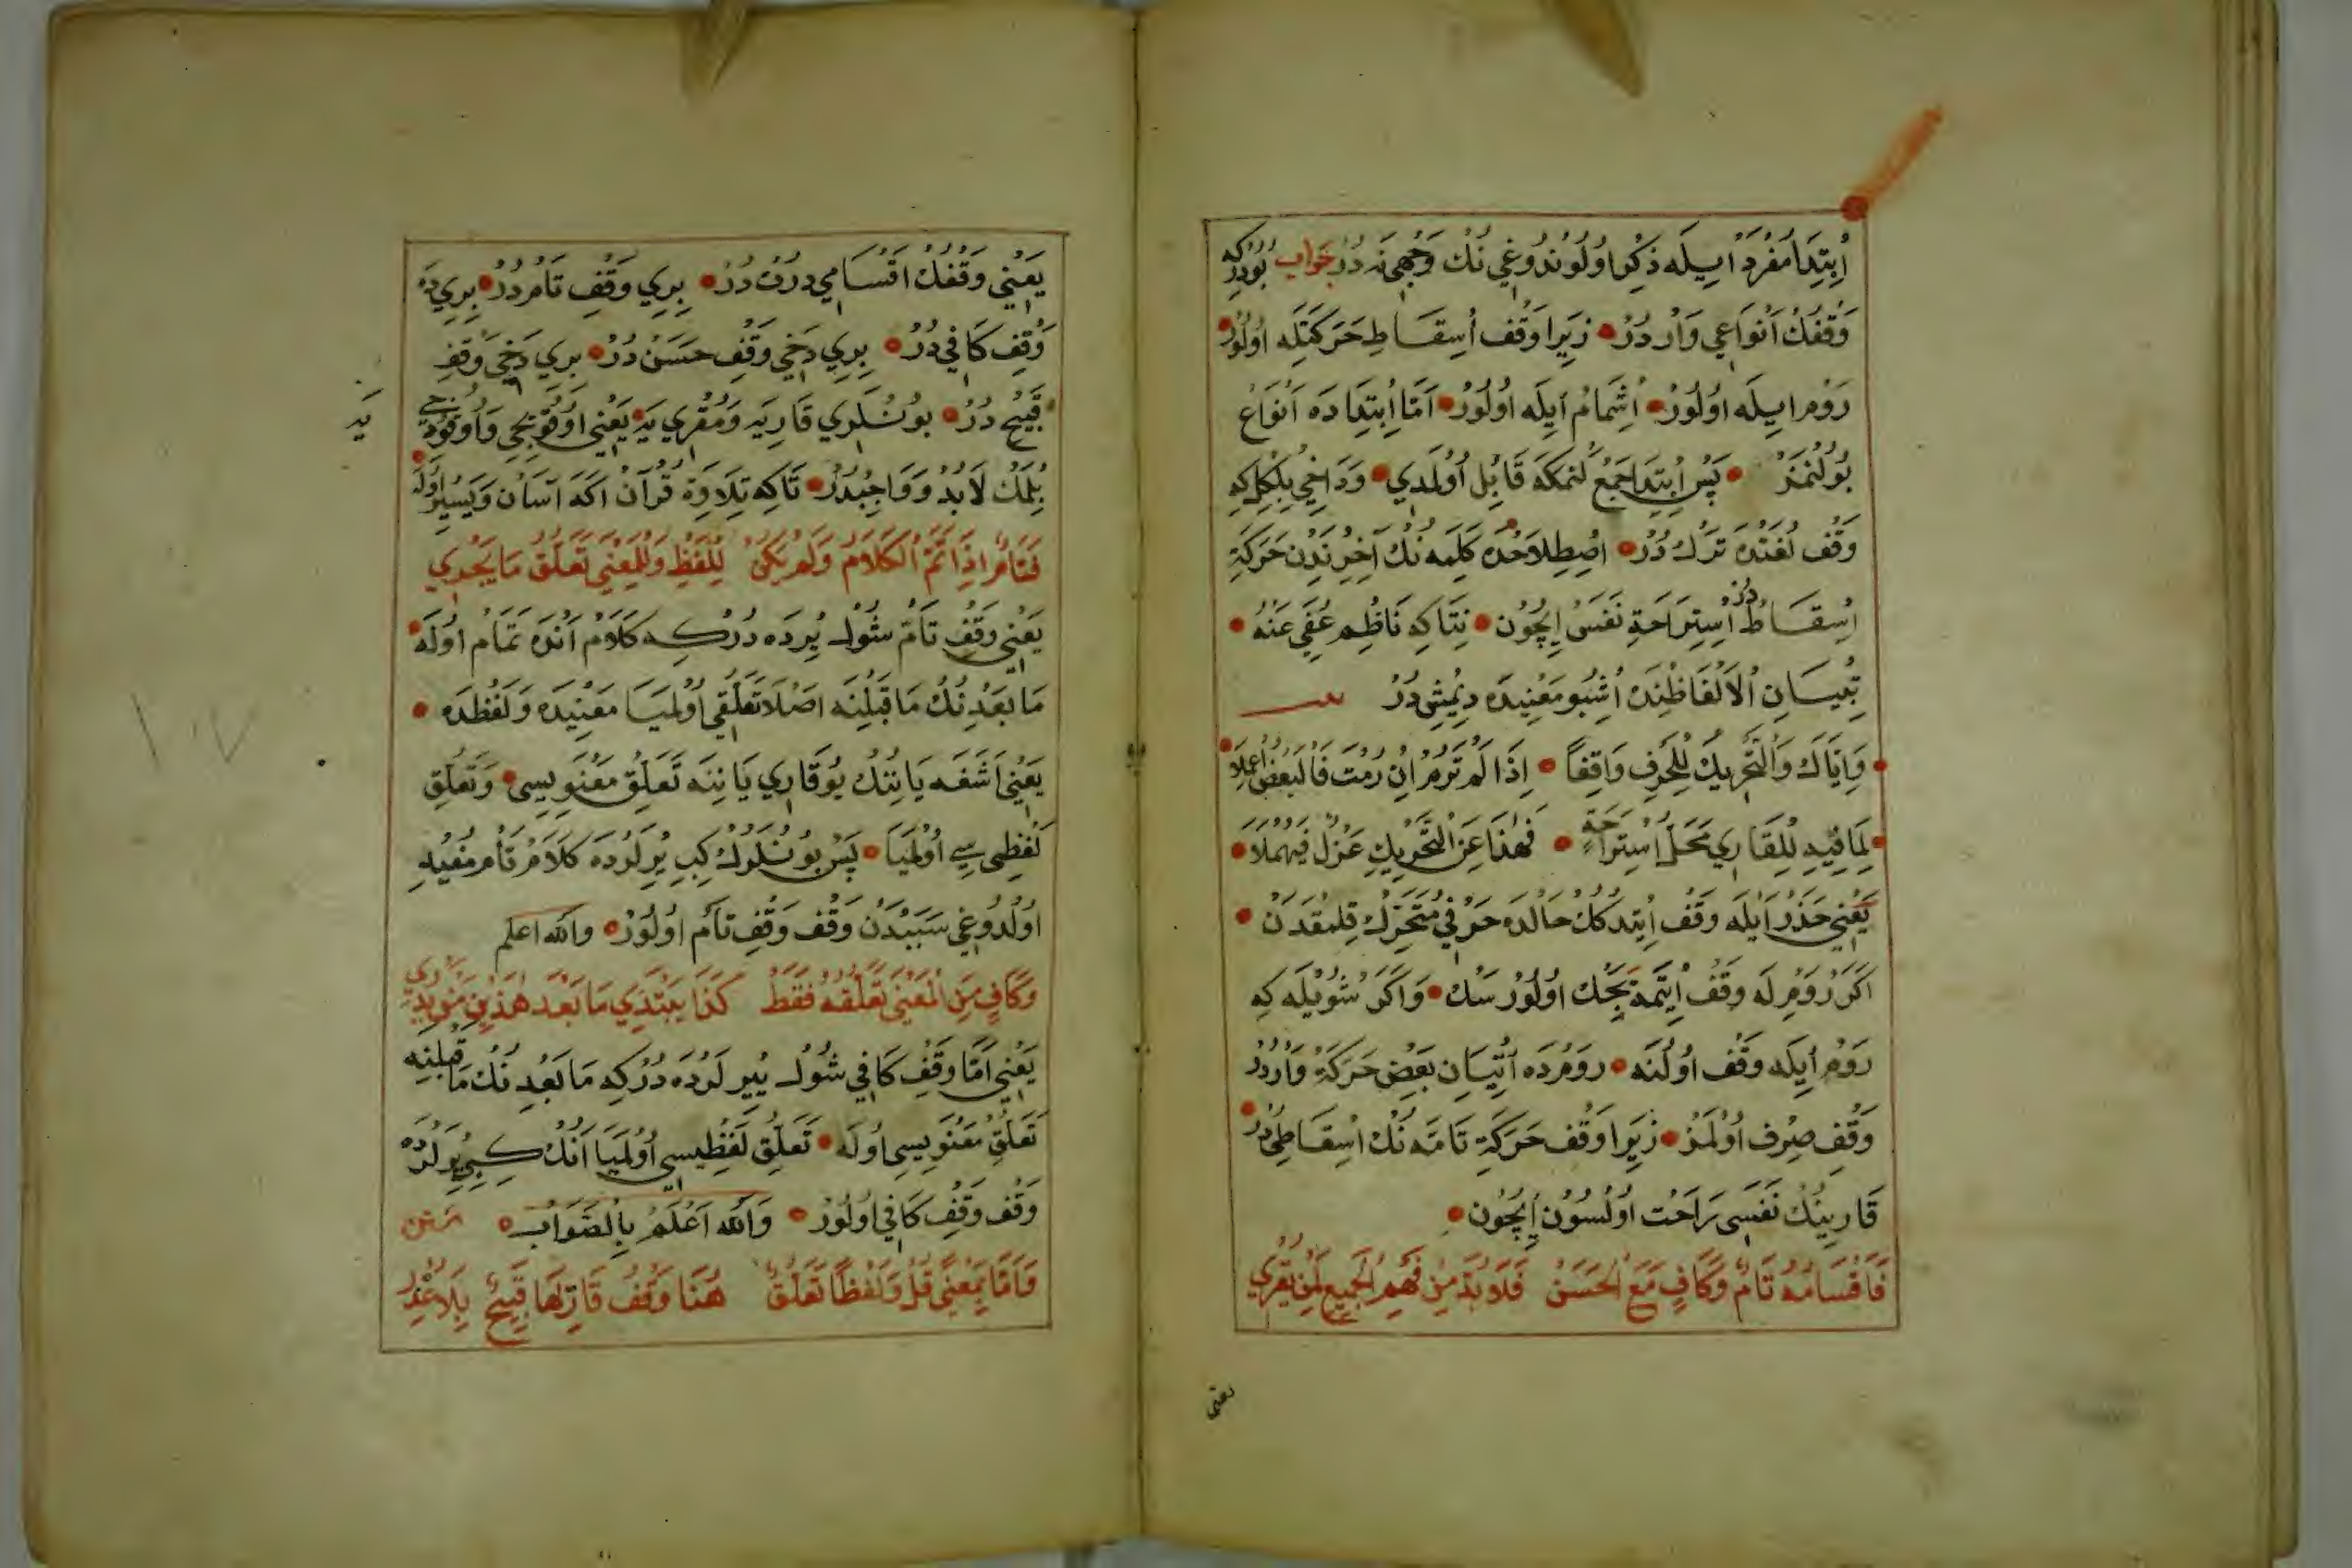 اُبْتِدَا مُفْرَدْ اِیلَه ذِكْر اُولُونْدُوغِي نُكْ وَجْهِي نَه دُرْ جَوَاب بُودُرْكِه
وَقْفُكْ اَنْوَاعِي وَارْدُرْ • زِيَرا وَقْف اُسِقَاطِ حَرَكَتْلَه اُولُوْر
رَوْم اِيلَه اُولُورْ • اُشْمَامْ اَيِلَه اُولُورْ • اَمَّا اُبْتِدَا دَه اَنْوَاع
بُولُنْمَزْ • پَسْ اُبْتِدَا جَمْع لَنْمَكَه قَابِل اُولْمَدِي • وَدَاخِي بِلْكِلِكِه
وَقْف لُغَتْدَه تَرْك دُرْ • اصْطِلَاحْدَه كَلِمَه نُكْ آخِرِنْدِنْ حَرَكَۀ
اُسِقَاطْ دُرْ اُسْتِرَاحَةِ نَفَسْ اِيچُونْ • نِتَاكِه نَاظِم عُفِيَ عَنْهُ •
تِبْيَانِ اْلاَلْفَاظِنْدَه اُشْبُو مَعْنِيدَه دِيمِشْدُرْ
• وَاِيَّاكَ وَالتَّحْرِيكَ لِلْحَرْفِ وَاقِفًا • اِذَا لَمْ تَرُمْ اِنْ رُمْتَ فَالْبَعْضُ اُعْمِلَا
• لِمَا فِيهِ لِلْقَارِي مَحَلُّ اسْتِرَاحَةٍ • فَهٰذَا عَنِ التَّحْرِيكِ عَزْلٌ فَيُهْمَلَا •
يَعْنِي حَذَرْ اَيْلَه وَقْف اِيتِدُكُكْ حَالْدَه حَرْفِي مُتَحَرِّكْ قِلْمَقْدَنْ •
اَكَرْ رَوْمِ لَه وَقْف اُيْتْمَيَجَكْ اُولُورْسَكْ • وَاَكَرْ شُويْلَه كِه
رَوْمْ اَيِلَه وَقْف اُولُنَه • رَوْمْدَه اُتِيَان بَعْضِ حَرَكَۀ وَارْدُرْ
وَقْفِ صِرْف اُولْمَزْ • زِيَرا وَقْف حَرَكَۀ تَامَّه نُكْ اسْقَاطِيدُرْ
قَارِينُكْ نَفَسِي رَاحَت اُولْسُونْ اُيچُونْ •
فَاَقْسَامُهُ تَامٌّ وَكَافٍ مَعَ الْحَسَنْ فَلَا بُدَّ مِنْ فَهْمِ الْجَمِيعِ لِمَنْ يَقْرِي
يعنى
يَعْنِي وَقْفُكْ اَقْسَامِي دُرْتْ دُرْ • بِرِي وَقْفِ تَامْ دُرْ • بِرِي دَه
وَقْفِ كَافِي دُرْ • بِرِي دَخِي وَقْفِ حَسَنْ دُرْ • بِرِي دَخِي وَقْفِ
قَبِيحْ دُرْ • بُونْلَرِي قَارِيَه وَمُقْرِي يَه يَعْنِي اُوقُوْيِجِي وَاُوقُودِيجِي
يَه
بِلْمَكْ لَابُدْ وَوَاجِبْدُرْ • تَاكِه تِلَاوَۀ قُرْآنْ اَكَه آسَانْ وَيَسِيرْ اُولَه
فَتَامٌّ اِذَا تَمَّ الْكَلَامُ وَلَمْ يَكُنْ لِلَّفْظِ وَلِلْمَعْنٰي تَعَلُّقُ مَا يَجْدِي
يَعْنِي وَقْفِ تَامّ شُولْ يِرْدَه دُرْكِه كَلَامْ اَنْدَه تَمَام اُولَه •
مَا بَعْدِنُكْ مَا قَبْلِنَه اَصْلَا تَعَلُّقِي اُولْمَيَا مَعْنِيدَه وَلَفْظْدَه •
يَعْنِي اَشَغَه يَانِنُكْ يُوقَارِي يَانِنَه تَعَلُّقِ مَعْنَوِيسِي • وَتَعَلُّقِ
لَفْظِي سِي اُولْمَيَا • پَسْ بُونْلَرُكْ كِبِي يِرْلَرْدَه كَلَامْ تَامّ مُفِيد
اُولْدُوغِي سَبَبْدَنْ وَقْف وَقْفِ تَامّ اُولُورْ • وَاللّٰه اَعْلَم
وَكَافٍ مِنَ الْمَعْنٰي تَعَلُّقُهُ فَقَطْ كَذَا يَبْتَدِي مَا بَعْدَ هٰذَيْنِ مَنْ يَدْرِي
يَعْنِي اَمَّا وَقْفِ كَافِي شُولْ يِيرْلَرْدَه دُرْكِه مَا بَعْدِنُكْ مَا قَبْلِنَه
تَعَلُّقِ مَعْنَوِيسِي اُولَه • تَعَلُّقِ لَفْظِيسِي اُولْمَيَا اَنُكْ كِبِي يِرْلَرْدَه
وَقْف وَقْفِ كَافِي اُولُورْ • وَاللّٰه اَعْلَمُ بِالصَّوَاب • متن
وَاَمَّا بِمَعْنًي قُلْ وَلَفْظًا تَعَلُّقٌ هُنَا وَقْفُ قَارِئِهَا قَبِيحٌ بِلَا عُذْرِ